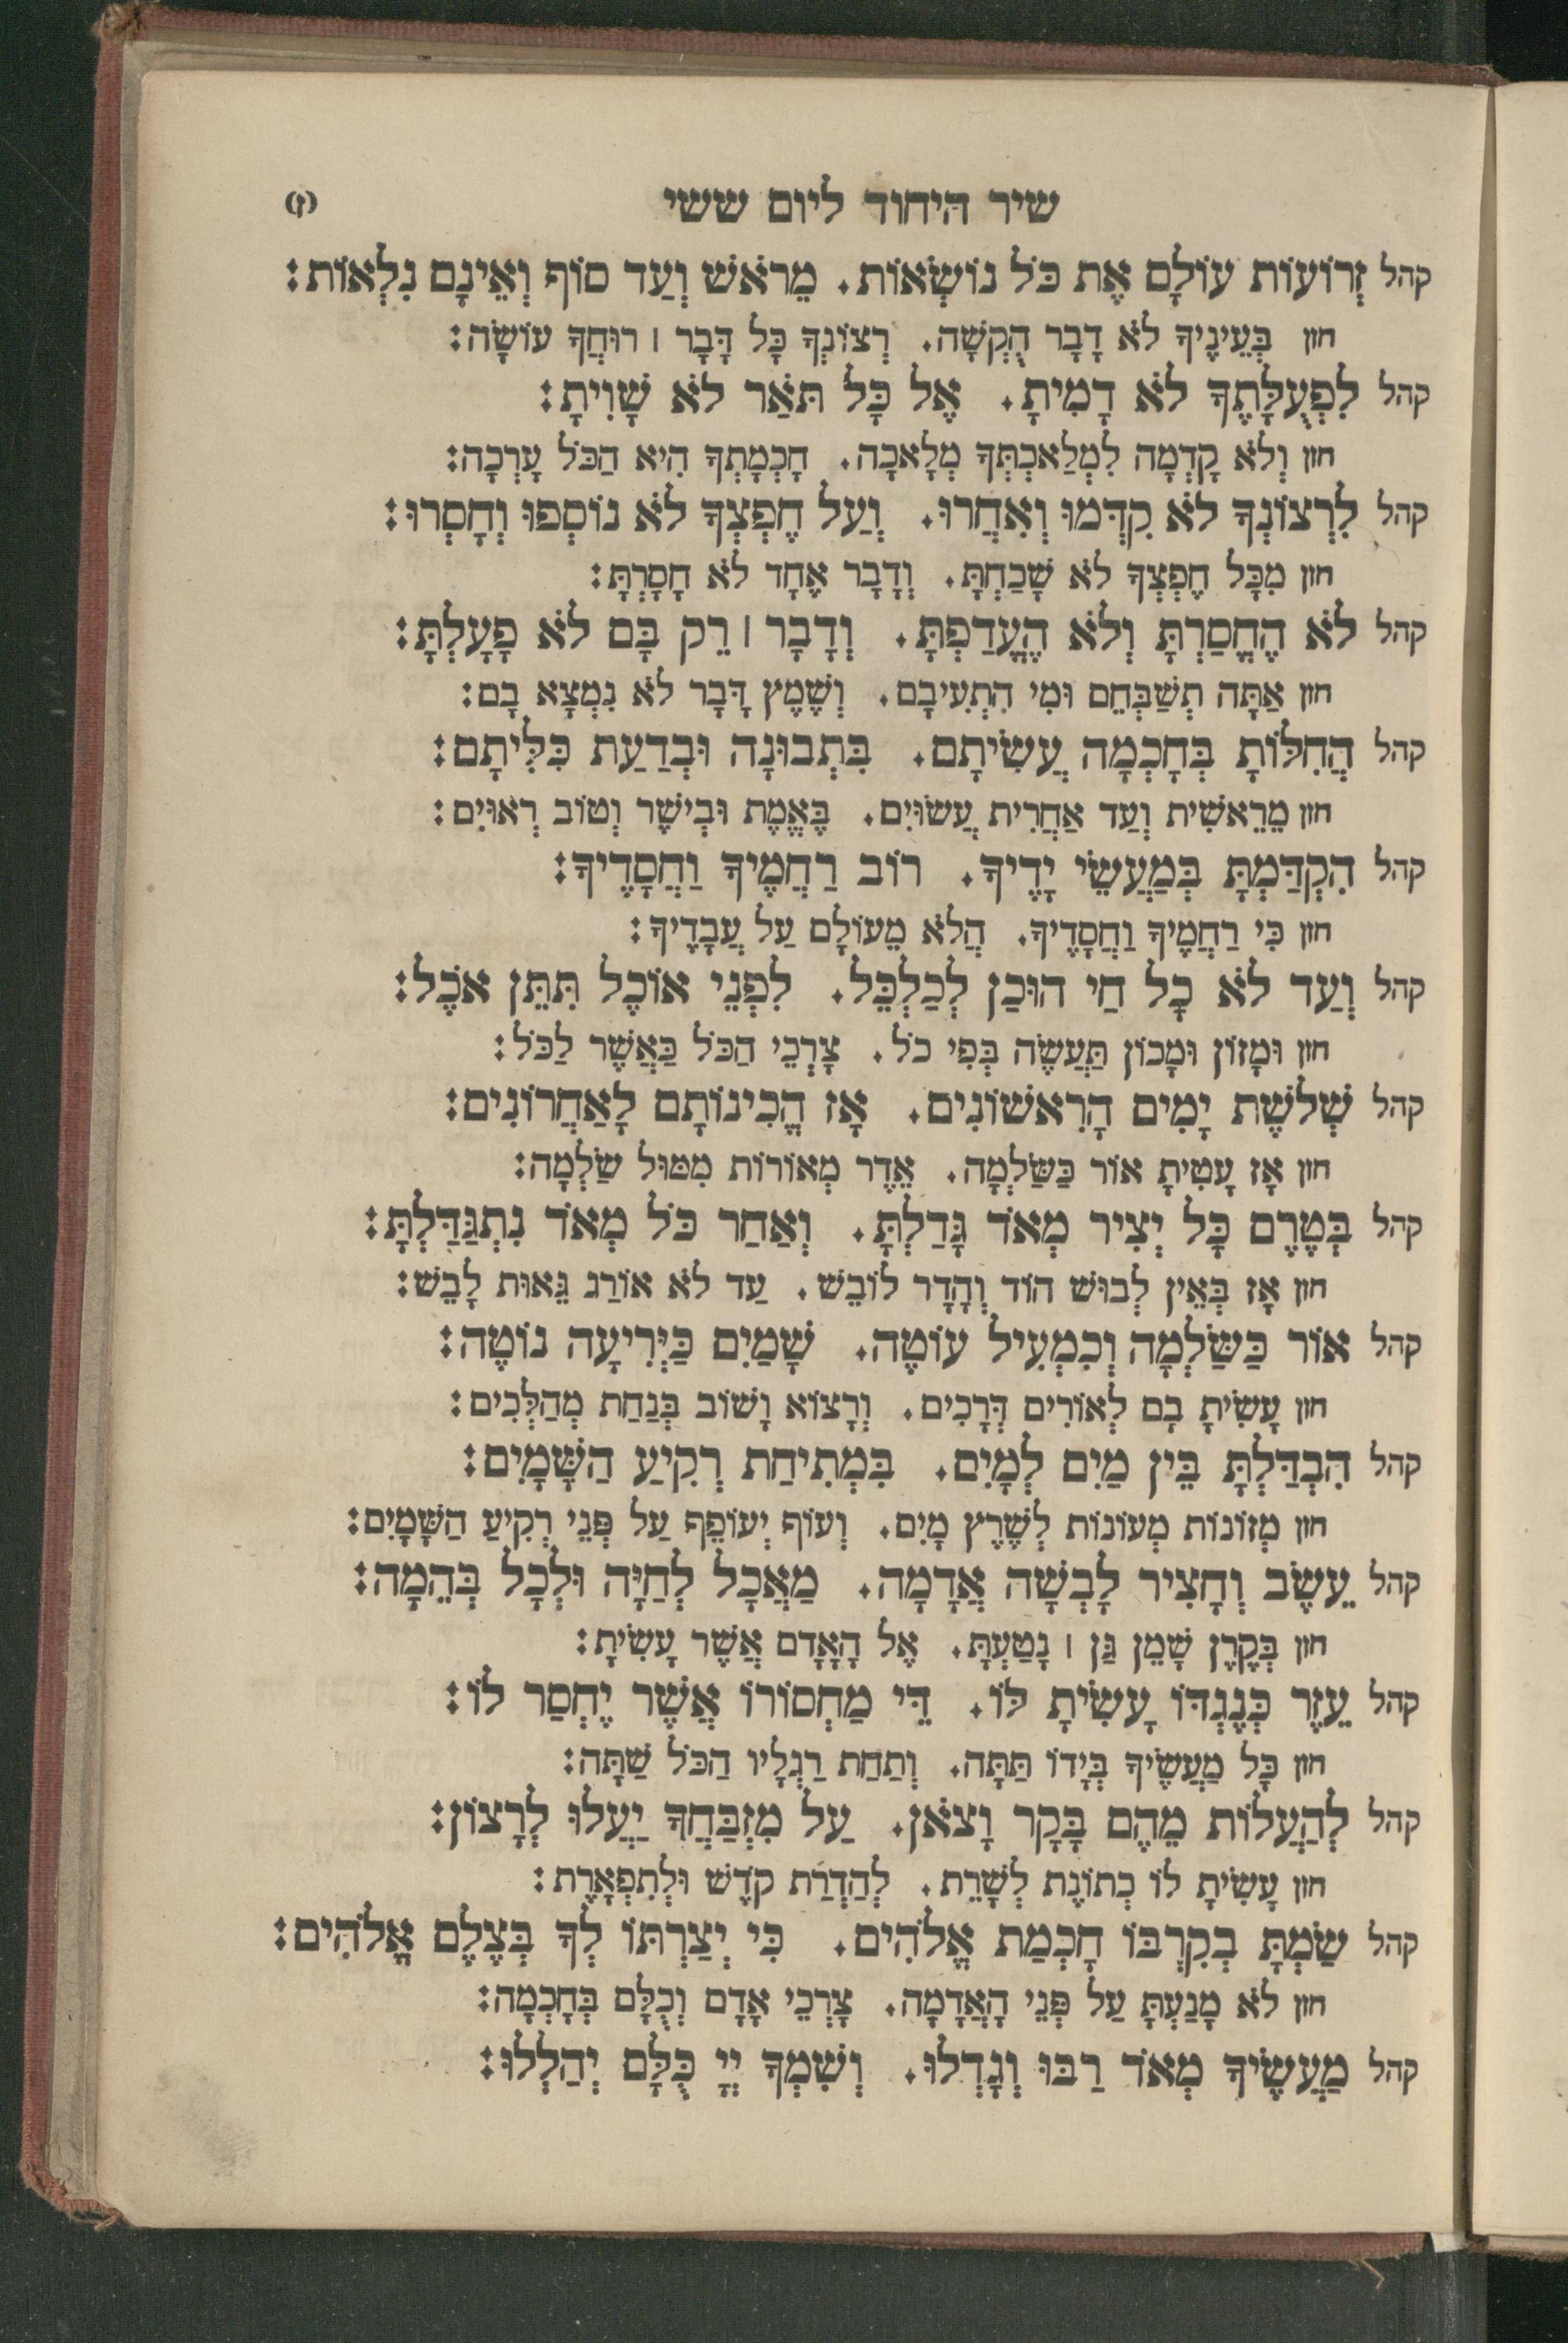 שיר היחוד ליום ששי (ז)
קהל זְרוֹעוֹת עוֹלָם אֶת כֹּל נוֹשְׂאוֹת. מֵרֹאשׁ וְעַד סוֹף וְאֵינָם נִלְאוֹת:
חזן בְּעֵינֶיךָ לֹא דָבָר הֻקְשָׁה. רְצוֹנְךָ כָּל דָּבָר ׀ רוּחֲךָ עוֹשָׂה:
קהל לִפְעֻלָּתֶךָ לֹא דָמִיתָ. אֶל כָּל תֹּאַר לֹא שָׁוִיתָ:
חזן וְלֹא קָדְמָה לִמְלַאכְתְּךָ מְלָאכָה. חָכְמָתְךָ הִיא הַכֹּל עָרְכָה:
קהל לִרְצוֹנְךָ לֹא קִדְּמוּ וְאִחֲרוּ. וְעַל חֶפְצְךָ לֹא נוֹסְפוּ וְחָסְרוּ:
חזן מִכָּל חֶפְצְךָ לֹא שָׁכַחְתָּ. וְדָבָר אֶחָד לֹא חָסָרְתָּ:
קהל לֹא הֶחֱסַרְתָּ וְלֹא הֶעֱדַפְתָּ. וְדָבָר ׀ רֵק בָּם לֹא פָעָלְתָּ:
חזן אַתָּה תְשַׁבְּחֵם וּמִי הִתְעִיבָם. וְשֶׁמֶץ דָּבָר לֹא נִמְצָא בָם:
קהל הֲחִלּוֹתָ בְּחָכְמָה עֲשִׂיתָם. בִּתְבוּנָה וּבְדַעַת כִּלִּיתָם:
חזן מֵרֵאשִׁית וְעַד אַחֲרִית עֲשׂוּיִם. בֶּאֱמֶת וּבְיֹשֶׁר וְטוֹב רְאוּיִם:
קהל הִקְדַּמְתָּ בְּמַעֲשֵׂי יָדֶיךָ. רוֹב רַחֲמֶיךָ וַחֲסָדֶיךָ:
חזן כִּי רַחֲמֶיךָ וַחֲסָדֶיךָ. הֲלֹא מֵעוֹלָם עַל עֲבָדֶיךָ:
קהל וְעַד לֹא כָל חַי הוּכַן לְכַלְכֵּל. לִפְנֵי אוֹכֶל תִּתֵּן אֹכֶל:
חזן וּמָזוֹן וּמָכוֹן תַּעֲשֶׂה בְּפִי כֹל. צָרְכֵי הַכֹּל כַּאֲשֶׁר לַכֹּל:
קהל שְׁלֹשֶׁת יָמִים הָרִאשׁוֹנִים. אָז הֱכִינוֹתָם לָאַחֲרוֹנִים:
חזן אָז עָטִיתָ אוֹר כַּשַּׂלְמָה. אֶדֶר מְאוֹרוֹת מִמּוּל שַׂלְמָה:
קהל בְּטֶרֶם כָּל יְצִיר מְאֹד גָּדַלְתָּ. וְאַחַר כֹּל מְאֹד נִתְגַּדַּלְתָּ:
חזן אָז בְּאֵין לְבוּשׁ הוֹד וְהָדָר לוֹבֵשׁ. עַד לֹא אוֹרַג גֵּאוּת לָבֵשׁ:
קהל אוֹר כַּשַּׂלְמָה וְכִמְעִיל עוֹטֶה. שָׁמַיִם כַּיְּרִיעָה נוֹטֶה:
חזן עָשִׂיתָ בָם לְאוֹרִים דְּרָכִים. וְרָצוֹא וָשׁוֹב בְּנַחַת מְהַלְּכִים:
קהל הִבְדַּלְתָּ בֵּין מַיִם לְמָיִם. בִּמְתִיחַת רְקִיעַ הַשָּׁמָיִם:
חזן מְזוֹנוֹת מְעוֹנוֹת לְשֶׁרֶץ מָיִם. וְעוֹף יְעוֹפֵף עַל פְּנֵי רְקִיעַ הַשָּׁמָיִם:
קהל עֵשֶׂב וְחָצִיר לָבְשָׁה אֲדָמָה. מַאֲכָל לְחַיָּה וּלְכָל בְּהֵמָה:
חזן בְּקֶרֶן שָׁמֵן גַּן ׀ נָטַעְתָּ. אֶל הָאָדָם אֲשֶׁר עָשִׂיתָ:
קהל עֵזֶר כְּנֶגְדּוֹ עָשִׂיתָ לּוֹ. דֵּי מַחְסוֹרוֹ אֲשֶׁר יֶחְסַר לוֹ:
חזן כָּל מַעֲשֶׂיךָ בְּיָדוֹ תַּתָּה. וְתַחַת רַגְלָיו הַכֹּל שַׁתָּה:
קהל לְהַעֲלוֹת מֵהֶם בָּקָר וָצֹאן. עַל מִזְבַּחֲךָ יַעֲלוּ לְרָצוֹן:
חזן עָשִׂיתָ לּוֹ כְתוֹנֶת לְשָׁרֵת. לְהַדְרַת קֹדֶשׁ וּלְתִפְאָרֶת:
קהל שַׂמְתָּ בְקִרְבּוֹ חָכְמַת אֱלֹהִים. כִּי יְצַרְתּוֹ לְךָ בְּצֶלֶם אֱלֹהִים:
חזן לֹא מָנַעְתָּ עַל פְּנֵי הָאֲדָמָה. צָרְכֵי אָדָם וְכֻלָּם בְּחָכְמָה:
קהל מַעֲשֶׂיךָ מְאֹד רַבּוּ וְגָדְלוּ. וְשִׁמְךָ יְיָ כֻּלָּם יְהַלְלוּ: